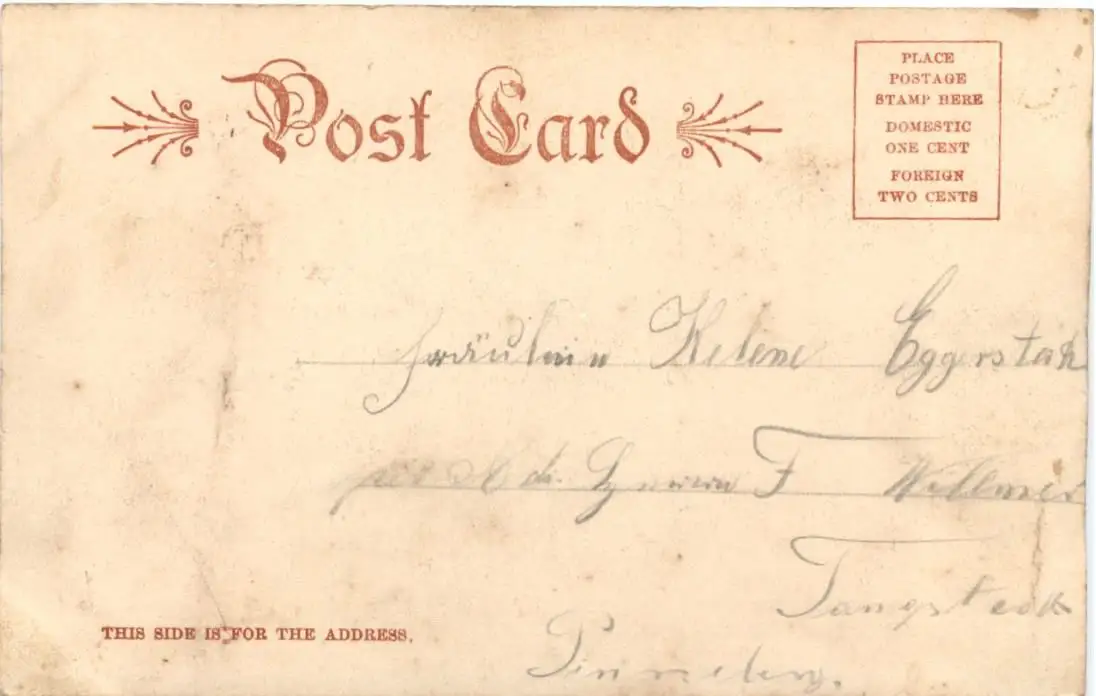 Post Card
PLACE
POSTAGE
STAMP HERE
DOMESTIC
ONE CENT
FOREIGN
TWO CENTS
Fräulein Helene
F
Tangstedt
Pinneberg.
THIS SIDE IS FOR THE ADDRESS.